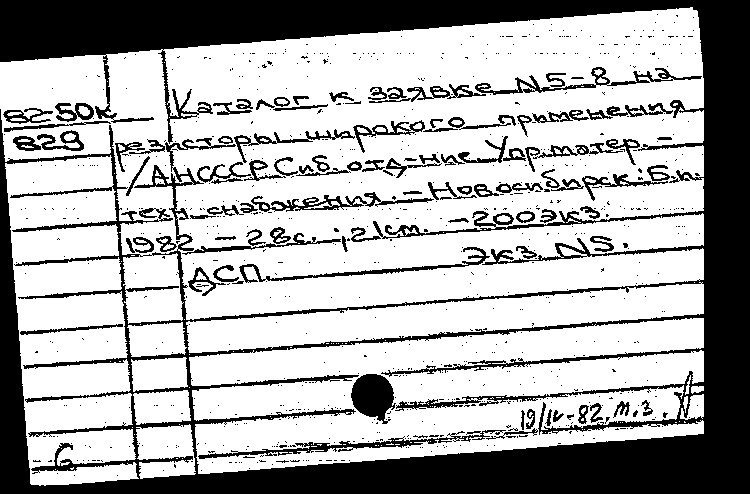 82-50к
829
Каталог к заявке N5-8 на
резисторы широкого применения
/АНСССР Сиб. отд-ние. Упр. матер.-
техн. снабжения. - Новосибирск: Б.и.
1982. - 28с. ; 21см. - 200экз.
ДСП. Экз. N5.
19/IV-82. м.з.
G